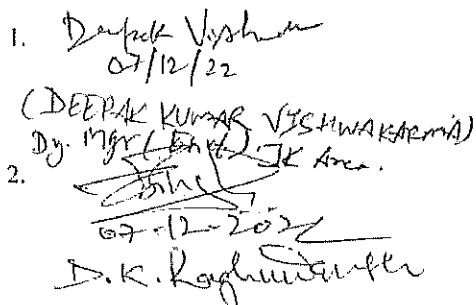 1. Deepak Vishwa
07/12/22
(DEEPAK KUMAR VISHWAKARMA)
Dy. Mgr (Envt) JK Area.
2.
07-12-2022
D.K. Raghuwanshi